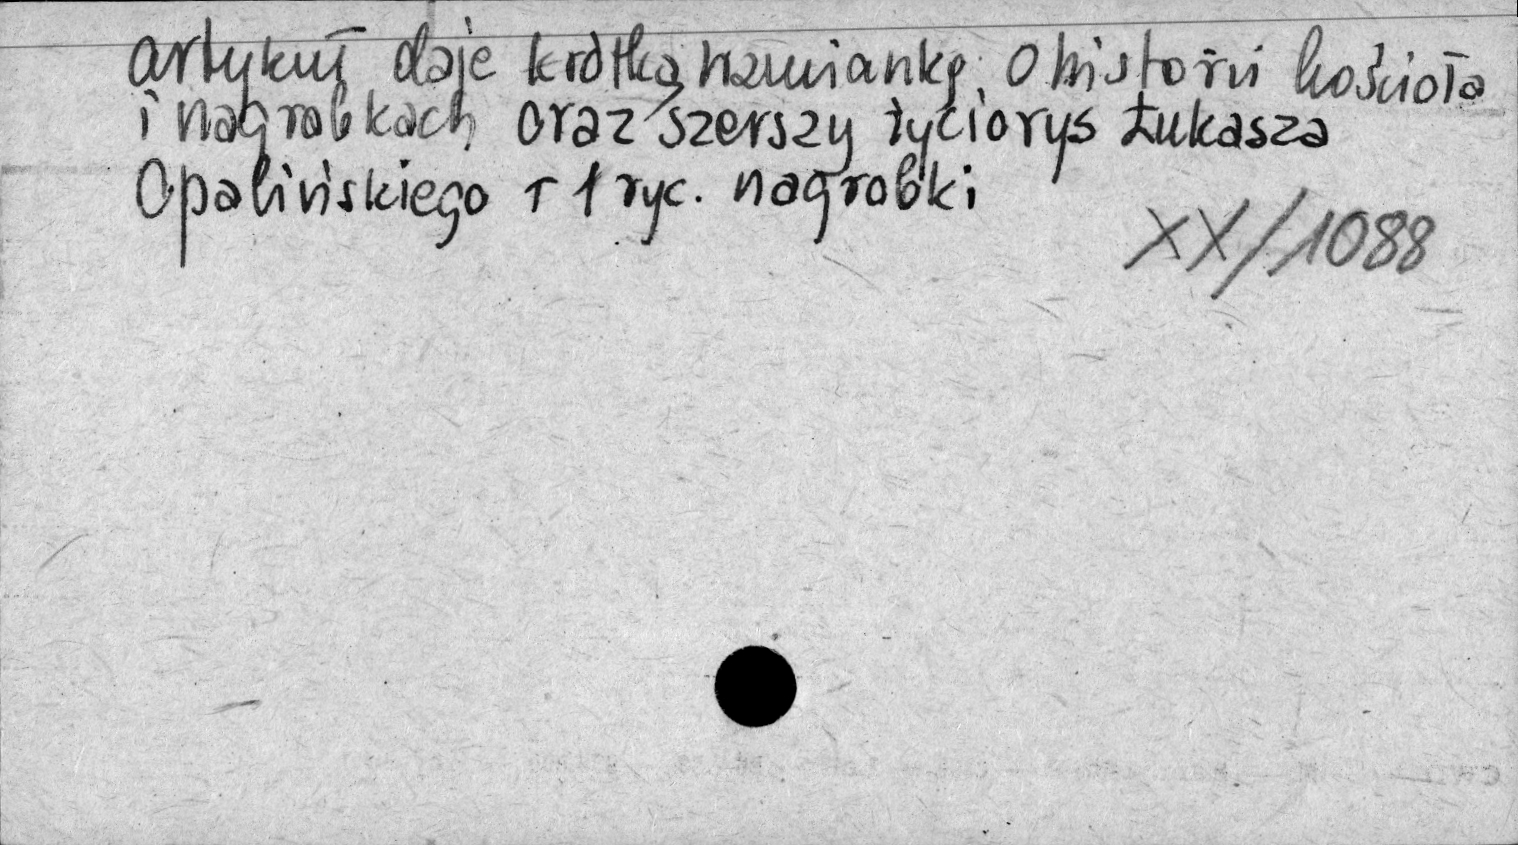 artykuł daje krótką wzmiankę o historii kościoła
i nagrobkach oraz szerszy życiorys Łukasza
Opalińskiego + 1 ryc. nagrobki
XX/1088